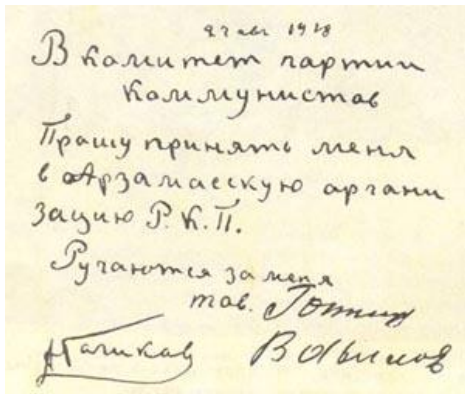 27 авг 1918
В комитет партии
коммунистов
Прошу принять меня
в Арзамасскую органи
зацию Р.К.П.
Ручаются за меня
тов.
АГоликов Вавилов